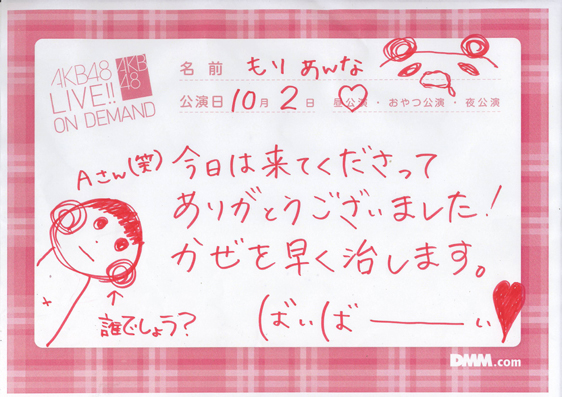 AKB48
LIVE!!
ON DEMAND
AKB
48
名前 もりあんな
公演日 10月 2日 昼公演・おやつ公演・夜公演
Aさん(笑)
今日は来てくださって
ありがとうございました!
かぜを早く治します。
誰でしょう?
ばいばーい
DMM.com